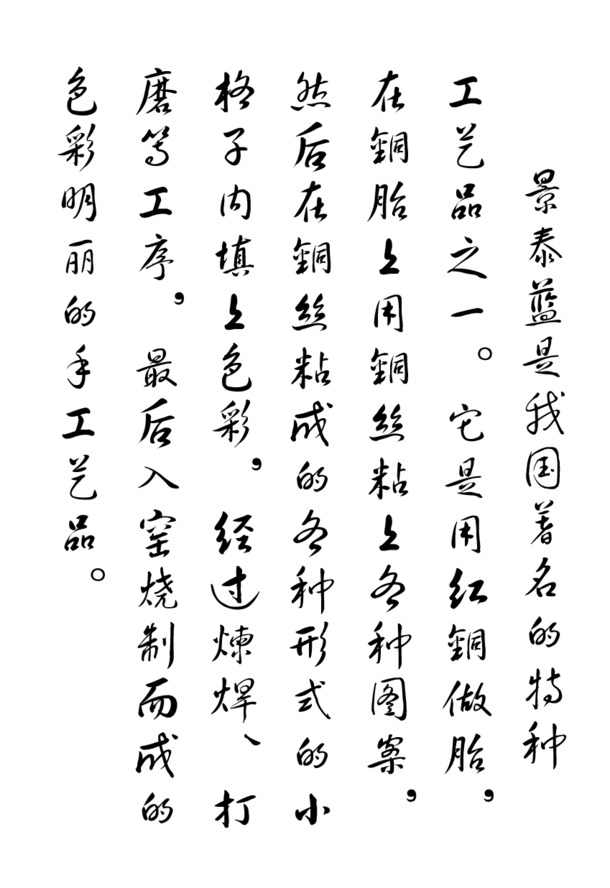 景泰蓝是我国著名的特种
工艺品之一。它是用红銅做胎，
在銅胎上用銅丝粘上各种图案，
然后在銅丝粘成的各种形式的小
格子内填上色彩，经过煉焊、打
磨等工序，最后入窑烧制而成的
色彩明丽的手工艺品。